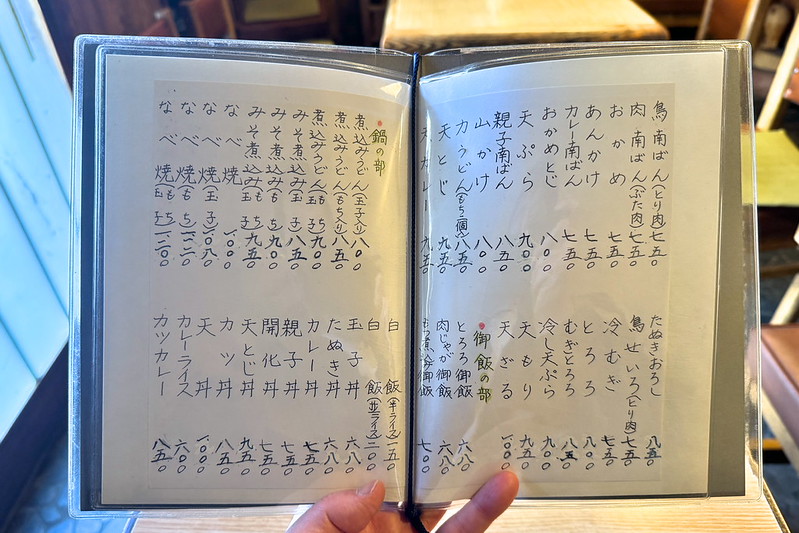 鳥南ばん(とり肉) 七五〇
肉南ばん(ぶた肉) 七五〇
おかめ 七五〇
あんかけ 七五〇
カレー南ばん 七五〇
おかめとじ 八〇〇
天ぷら 九〇〇
親子南ばん 八五〇
山かけ 八〇〇
力うどん(もち二個入) 八五〇
天とじ 九五〇
天カレー 九五〇
たぬきおろし 八五〇
鳥せいろ(とり肉) 七五〇
冷むぎ 七五〇
とろろ 八〇〇
むぎとろろ 八五〇
冷し天ぷら 九〇〇
天もり 九五〇
天ざる 一、〇〇〇
御飯の部
とろろ御飯 六八〇
肉じゃが御飯 六八〇
もつ煮込み御飯 七〇〇
鍋の部
煮込みうどん(玉子入り) 八〇〇
煮込みうどん(もち入り) 八五〇
煮込みうどん(玉子もち) 九〇〇
みそ煮込み(玉子) 八五〇
みそ煮込み(もち) 九〇〇
みそ煮込み(玉子もち) 九五〇
なべ焼 一、〇〇〇
なべ焼(玉子) 一、〇八〇
なべ焼(もち) 一、一二〇
なべ焼(玉子もち) 一、二〇〇
白飯(半ライス) 一五〇
白飯(並ライス) 二〇〇
玉子丼 六八〇
たぬき丼 六八〇
カレー丼 七五〇
親子丼 七五〇
開化丼 七五〇
天とじ丼 九五〇
カツ丼 八五〇
天丼 一、〇〇〇
カレーライス 六〇〇
カツカレー 八五〇